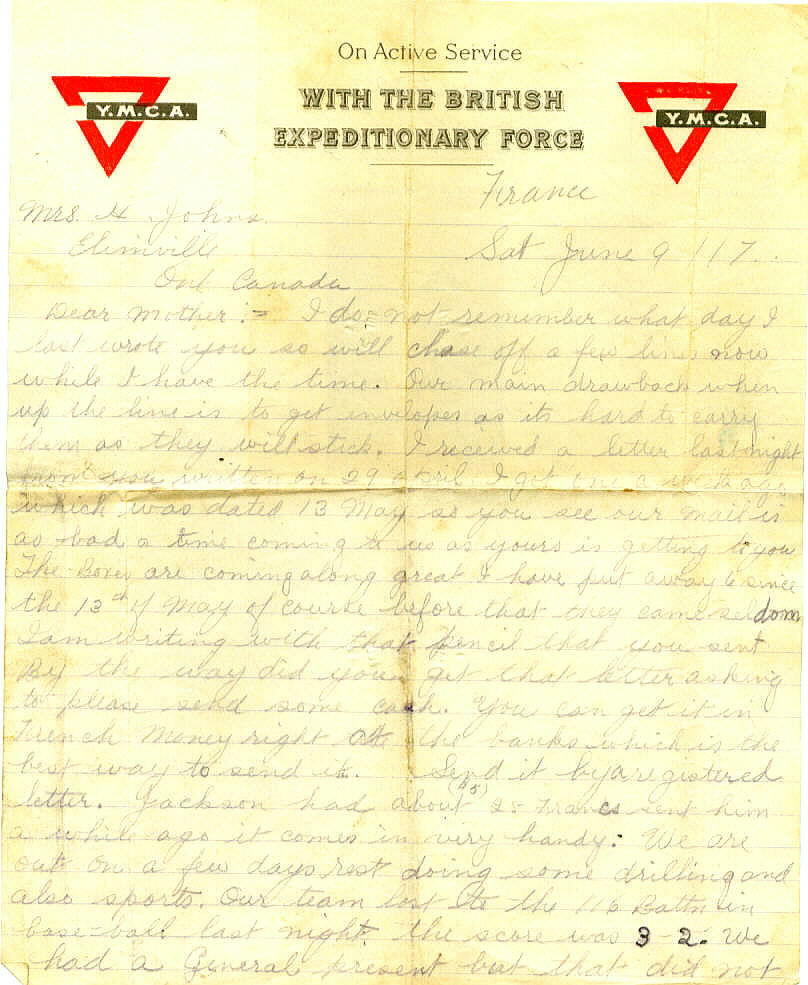 On Active Service
WITH THE BRITISH
EXPEDITIONARY FORCE
Y.M.C.A.
Y.M.C.A.
France
Mrs. H Johns.
Elimville
Sat June 9 / 17.
Ont Canada
Dear Mother:- I do not remember what day I
last wrote you so will chase off a few lines now
while I have the time. Our main drawback when
up the line is to get envelopes as its hard to carry
them as they will stick. I received a letter last night
from you written on 29 April I got one a week ago
which was dated 13 May so you see our mail is
as bad a time coming to us as yours is getting to you
The Boxes are coming along great I have put away 6 since
the 13th of May of course before that they came seldom
I am writing with that pencil that you sent
By the way did you get that letter asking
to please send some cash. You can get it in
French Money right at the banks which is the
best way to send it. Send it by a registered
letter. Jackson had about ($5) 25 Francs sent him
a while ago it comes in very handy: We are
out on a few days rest doing some drilling and
also sports. Our team lost to the 116 Battn in
base-ball last night. the score was 3-2. We
had a General present but that did not